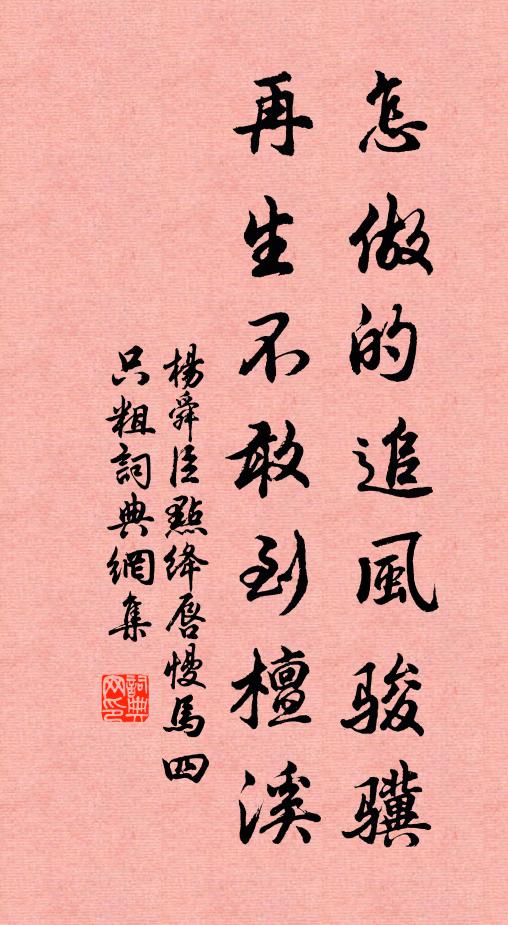 怎做的追風骏骥
再生不敢到檀溪
楊舜臣點绛唇慢馬四
只粗詞典網集
詞典网印